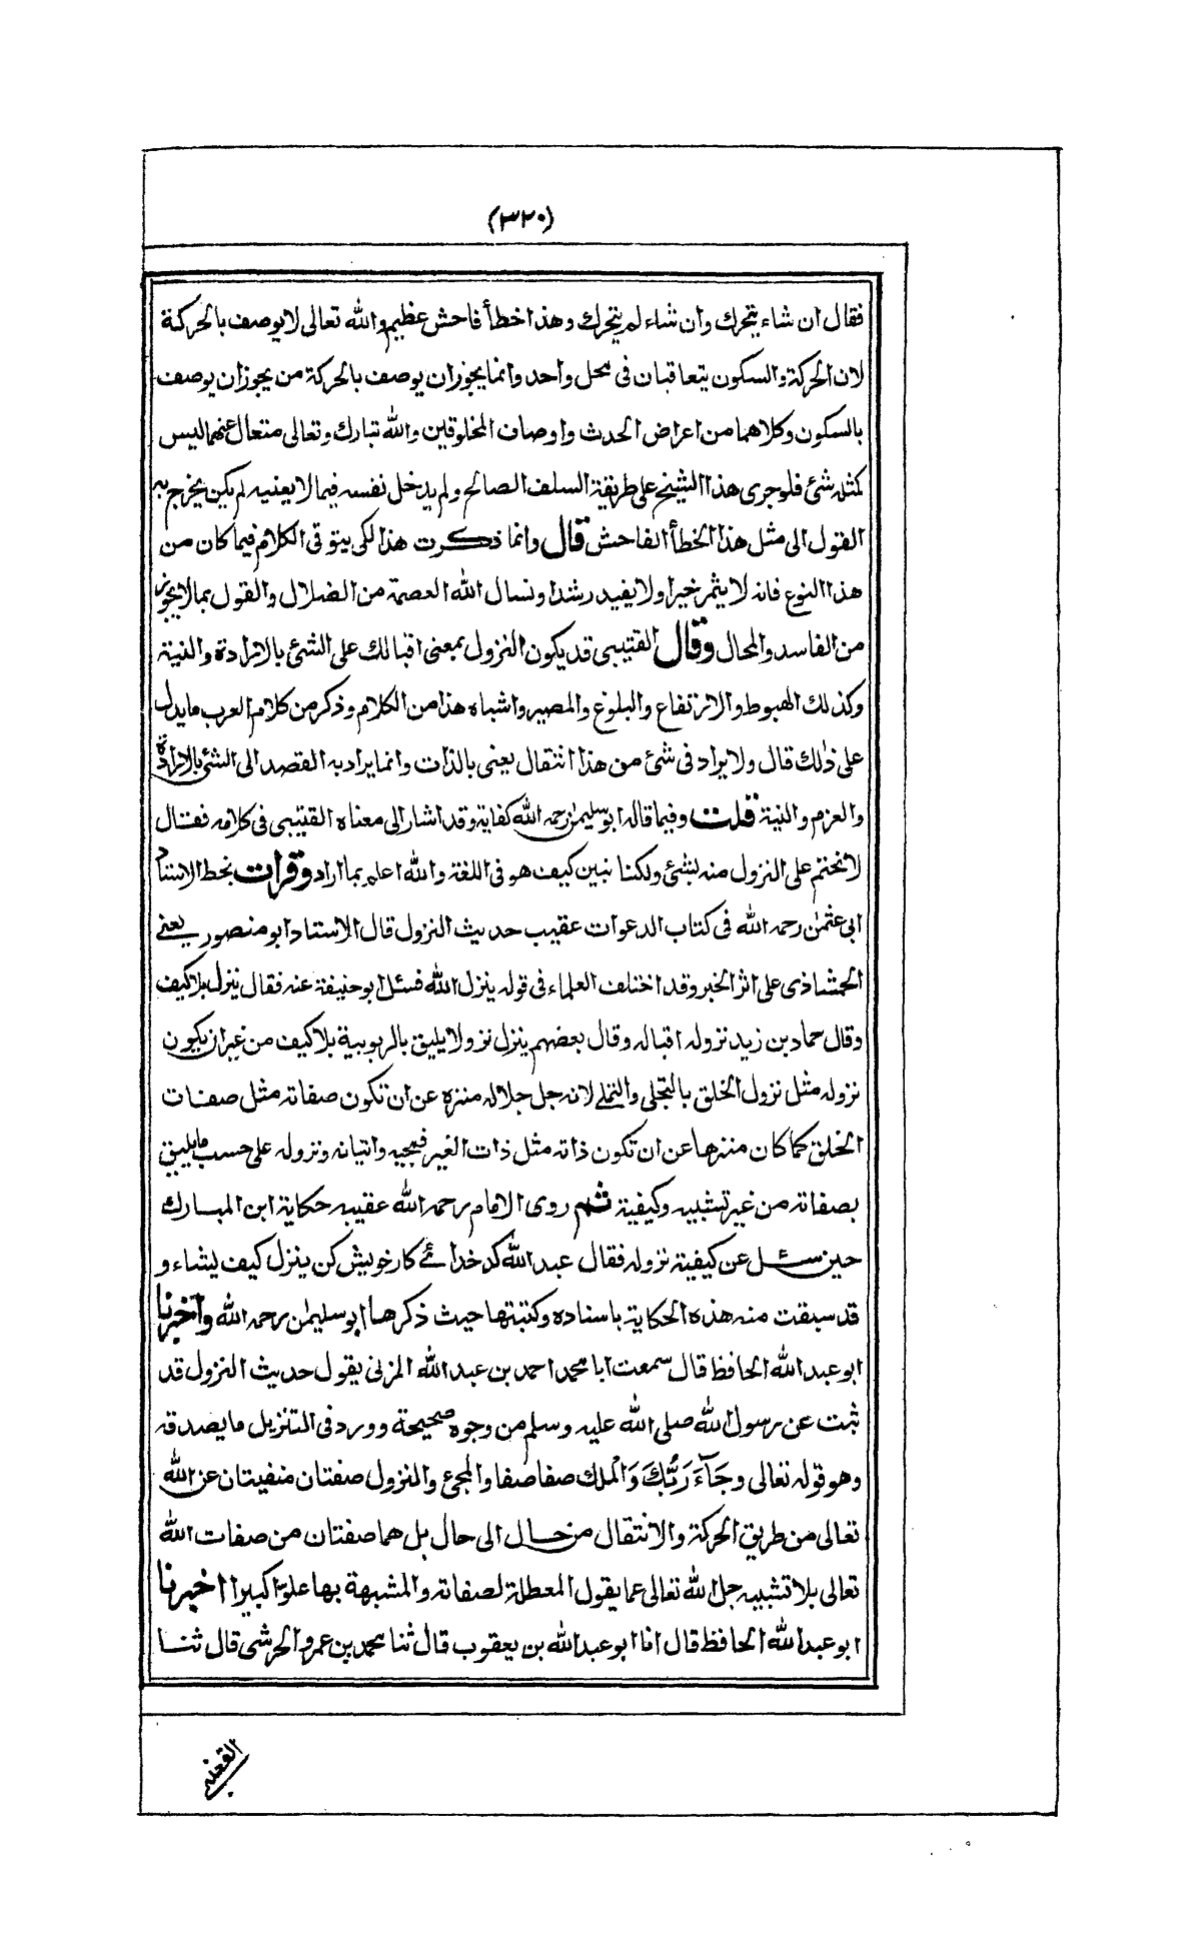 (٣٢٠)
فقال ان شاء يتحرك وان شاء لم يتحرك وهذا خطأ فاحش عظيم والله تعالى لا يوصف بالحركة
لان الحركة والسكون يتعاقبان فى محل واحد وانما يجوز ان يوصف بالحركة من يجوز ان يوصف
بالسكون وكلاهما من اعراض الحدث واوصاف المخلوقين والله تبارك وتعالى متعال عنهما ليس
كمثله شئ فلو جرى هذا الشيخ على طريقة السلف الصالح ولم يدخل نفسه فيما لا يعنيه لم يكن يخرج به
القول الى مثل هذا الخطأ الفاحش قال وانما ذكرت هذا لكى يتوقى الكلام فيما كان من
هذا النوع فانه لا يثمر خيرا ولا يفيد رشدا ونسال الله العصمة من الضلال والقول بما لا يجوز
من الفاسد والمحال وقال القتيبى قد يكون النزول بمعنى اقبالك على الشئ بالارادة والنية
وكذلك الهبوط والارتفاع والبلوغ والمصير واشباه هذا من الكلام وذكر من كلام العرب ما يدل
على ذلك قال ولا يراد فى شئ من هذا انتقال يعنى بالذات وانما يراد به القصد الى الشئ بالارادة
والعزم والنية قلت وفيما قاله ابو سليمٰن رحمه الله كفاية وقد اشار الى معناه القتيبى فى كلامه فقال
لا نحتم على النزول منه بشئ ولكنا نبين كيف هو فى اللغة والله اعلم بما اراد وقرات بخط الاستاذ
ابى عثمٰن رحمه الله فى كتاب الدعوات عقيب حديث النزول قال الاستاد ابو منصور يعنے
الحمشاذى على اثر الخبر وقد اختلف العلماء فى قوله ينزل الله فسئل ابو حنيفة عنه فقال ينزل بلا كيف
وقال حماد بن زيد نزوله اقباله وقال بعضهم ينزل نزولا يليق بالربوبية بلا كيف من غير ان يكون
نزوله مثل نزول الخلق بالتجلى والتملے لانه جل جلاله منزه عن ان تكون صفاته مثل صفات
الخلق كما كان منزها عن ان تكون ذاته مثل ذات الغير فمجيه واتيانه ونزوله على حسب ما يليق
بصفاته من غير تشبيه وكيفية ثم روى الامام رحمه الله عقيبه حكاية ابن المبارك
حين سئل عن كيفية نزوله فقال عبد الله كد خدائے كار خويش كن ينزل كيف يشاء و
قد سبقت منه هذه الحكاية باسناده وكتبتها حيث ذكرها ابو سليمٰن رحمه الله واخبرنا
ابو عبد الله الحافظ قال سمعت ابا محمد احمد بن عبد الله المزنى يقول حديث النزول قد
ثبت عن رسول الله صلى الله عليه وسلم من وجوه صحيحة وورد فى التنزيل ما يصدقه
وهو قوله تعالى وَجَآءَ رَبُّكَ وَالْملك صفا صفا والمجئ والنزول صفتان منفيتان عن الله
تعالى من طريق الحركة والانتقال من حال الى حال بل هما صفتان من صفات الله
تعالى بلا تشبيه جل الله تعالى عما يقول المعطلة لصفاته والمشبهة بها علوا كبيرا اخبرنا
ابو عبد الله الحافظ قال انا ابو عبد الله بن يعقوب قال ثنا محمد بن عمرو الحرشى قال ثنا
القعنبى